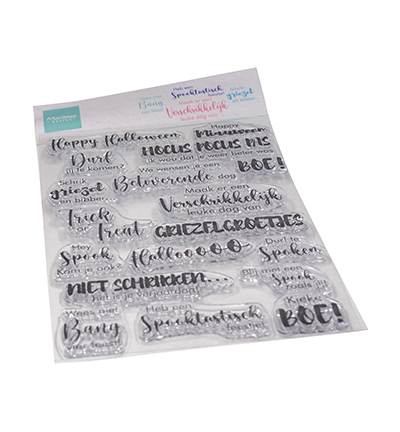 Marianne
Design
Wees niet
Bang
voor feest!
Heb een
Spooktastisch
feestje!
Maak er een
Verschrikkelijk
leuke dag van
Schrik
griezel
en bibber
Happy Halloween
Happy
HOCUS POCUS PAS
ik wou dat je weer beter was
Durf
jij te komen?
We wensen je een
BOE!
Schrik
griezel
en bibber...
Betoverende dag
Maak er een
Verschrikkelijk
leuke dag van
Trick
or
Treat
GRIEZELGROETJES
Hey
Spook
Kom je ook?
Hallooooo
Durf te
Spoken
NIET SCHRIKKEN...
het is je verjaardag!
Blij met een
Spook
zoals jij!
Wees niet
Bang
voor feest!
Heb een
Spooktastisch
feestje!
Kieke
BOE!